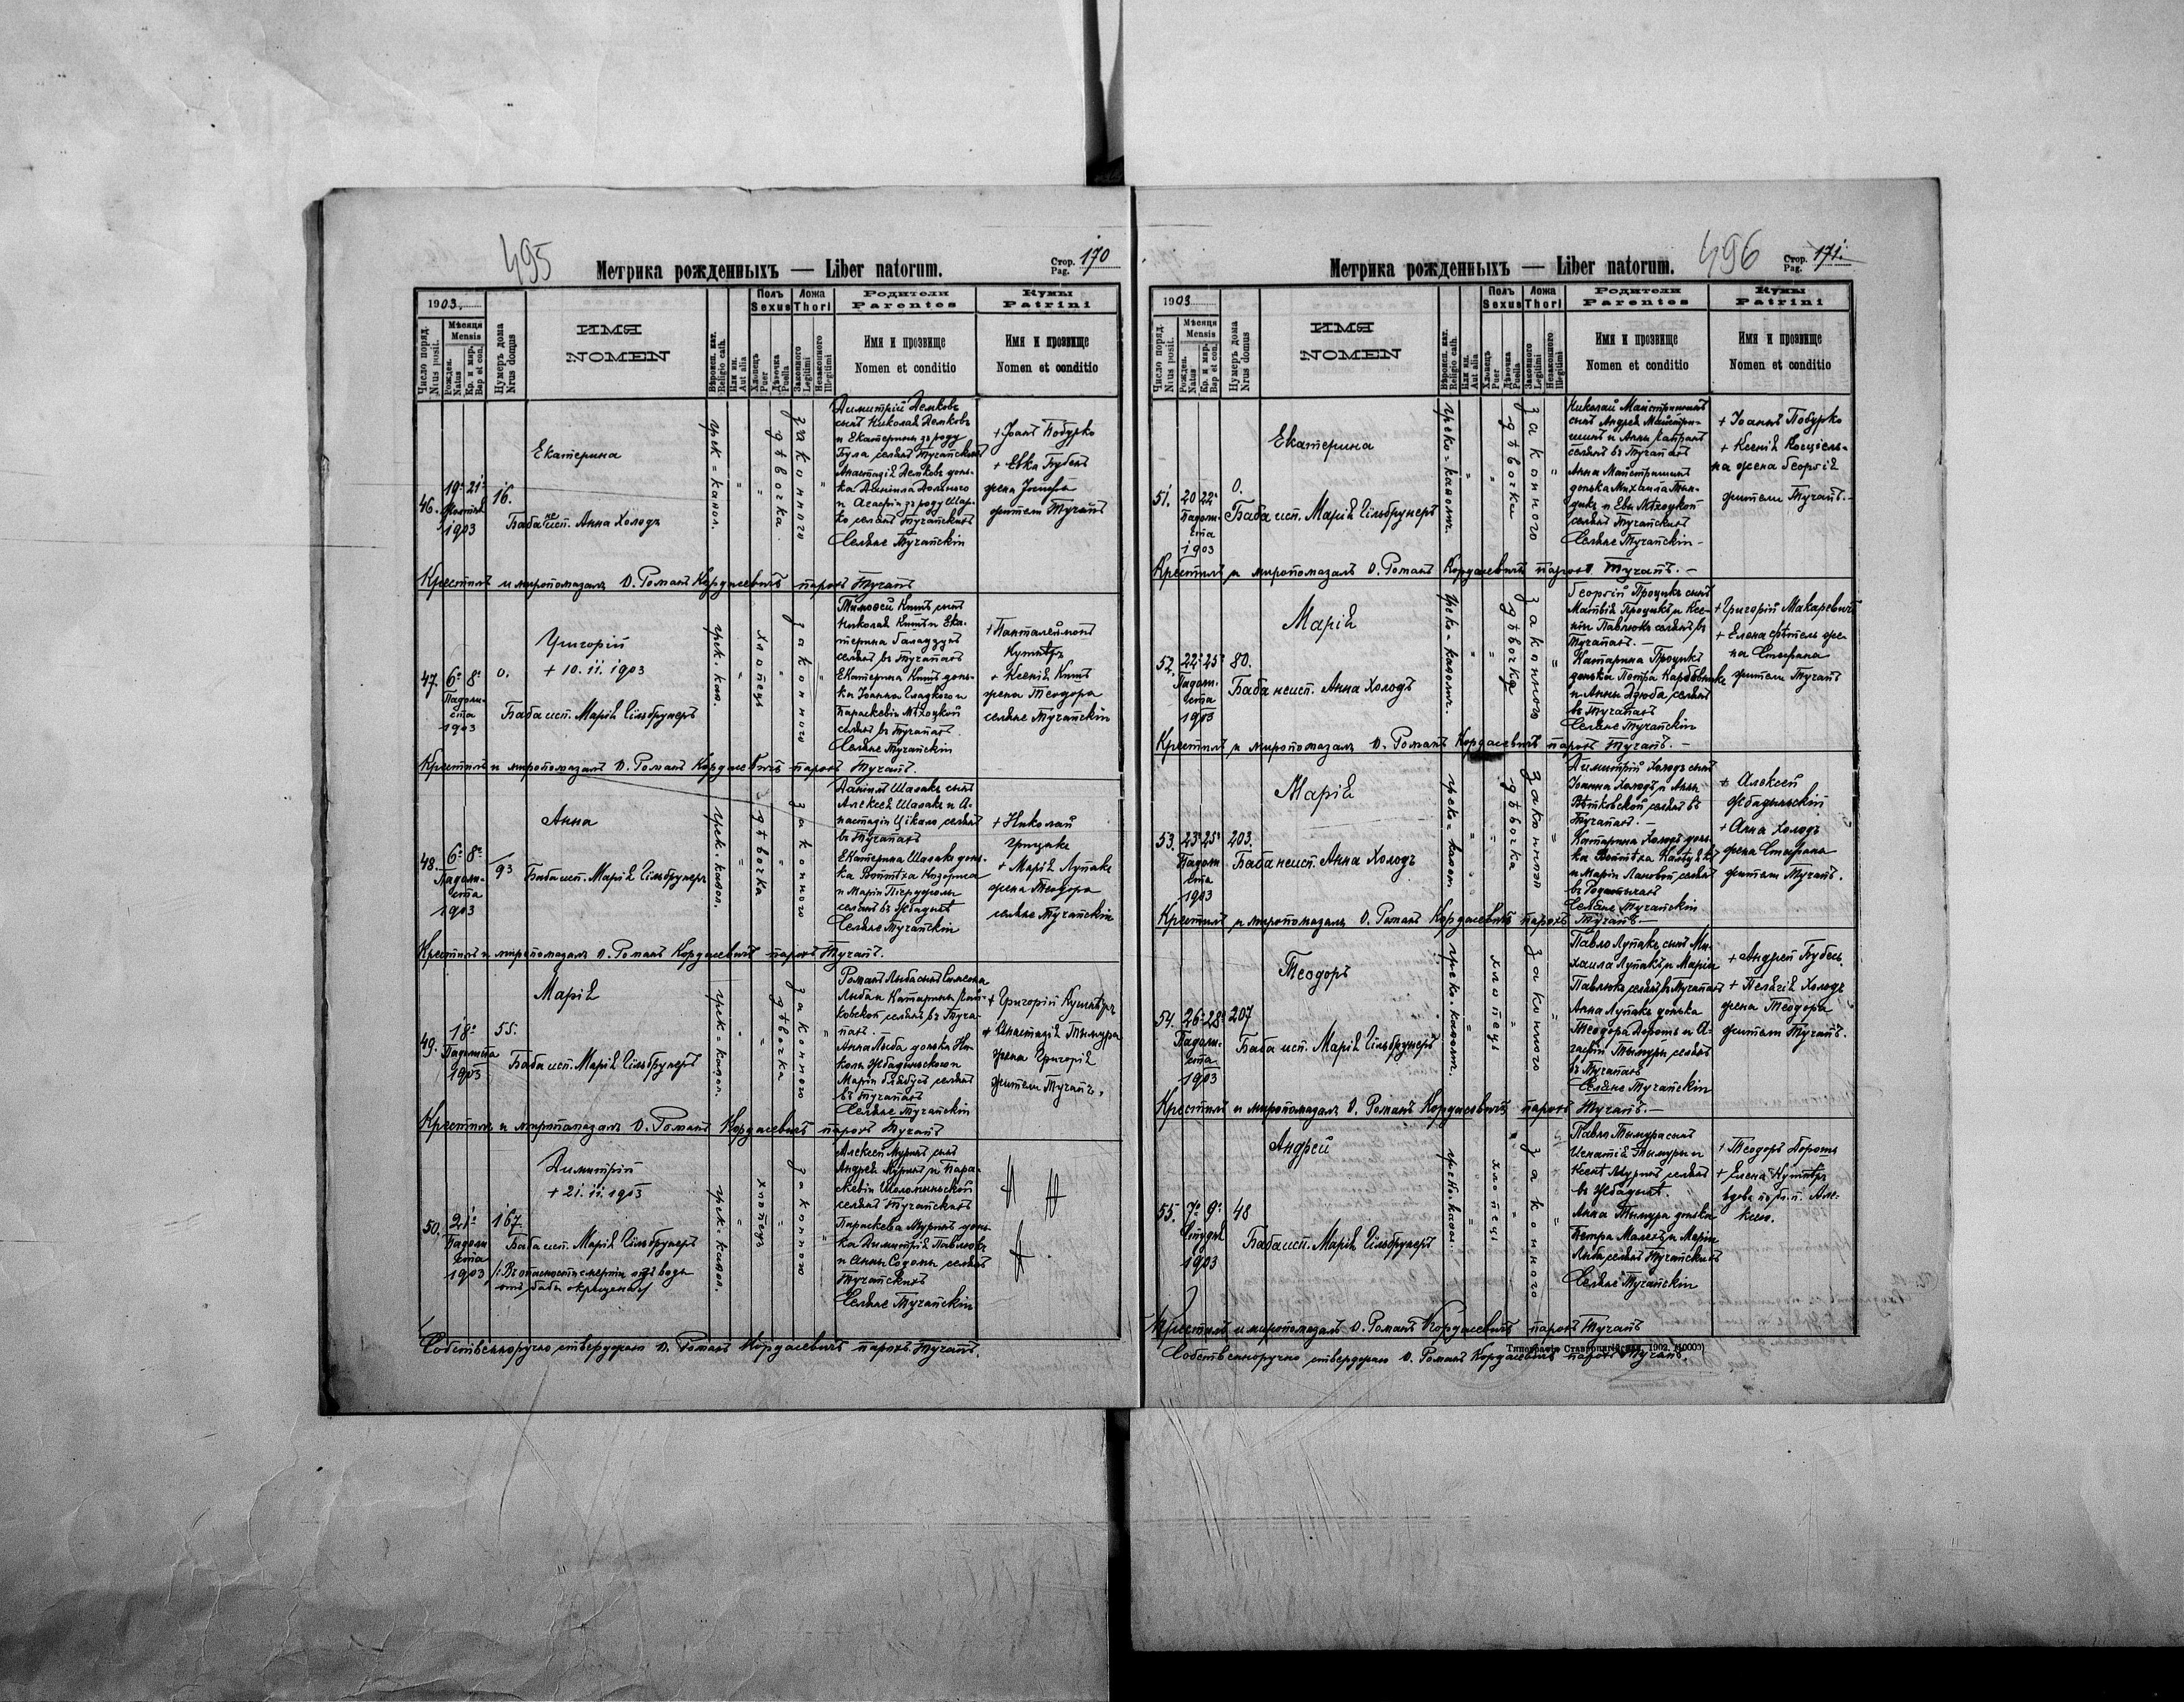 495
Метрика рожденныхъ — Liber natorum.
Стор. 170
Pag.
1903.
Число поряд.
Nrus posit.
Мѣсяця
Mensis
Рожден.
Natus
Кр. и мир.
Bap et con.
Нумеръ дома
Nrus domus
ИМЯ
NOMEN
Вѣроисп. кат.
Religio cath.
Или ин.
Aut alia
Полъ
Sexus
Хлопець
Puer
Дѣвочка
Puella
Ложа
Thori
Законного
Legitimi
Незаконного
Illegitimi
Родители
Parentes
Имя и прозвище
Nomen et conditio
Кумы
Patrini
Имя и прозвище
Nomen et conditio
46.
19. 21.
1903
16.
Екатерина
Баба неисп. Анна Холодъ
грек = катол.
дѣвочка
законного
Димитрій Демковъ
сынъ Николая Демковъ
и Екатерины зъ роду
Була селянъ Тучапскихъ
Анастазія Демковъ донь-
ка Даніила
и Агафіи зъ роду Шар-
ко селянъ Тучапскихъ
Селяне Тучапскіи
+ Іоанъ Побурко
+ Евка Бубенъ
жена Іосифа
жители Тучапъ
Крестилъ и миропомазалъ О. Романъ Кордасевичъ парохъ Тучапъ
47.
6. 8.
Падоли-
ста
1903
0.
Григорій
+ 10. 11. 1903
Баба исп. Марія Гільбрунеръ
грек. кат.
хлопець
законного
Тимофей Кить сынъ
Николая Кить и Ека-
терина
селянъ въ Тучапахъ
Екатерина Кить донь-
ка Іоанна Гладкого и
Параскевіи Мѣхоцкой
селянъ въ Тучапахъ.
Селяне Тучапскіи
+ Панталеймонъ
Кушнѣръ
+ Ксенія Кить
жена Теодора
селяне Тучапскіи
Крестилъ и миропомазалъ О. Романъ Кордасевичъ парохъ Тучапъ.
48.
6. 8.
Падоли-
ста
1903
93
Анна
Баба исп. Марія Гільбрунеръ
грек. катол.
дѣвочка
законного
Даніилъ Шалакъ сынъ
Алексея Шалакъ и А-
настазіи Цікало селянъ
въ Тучапахъ
Екатерина Шалакъ донь-
ка Войтѣха
и Маріи
селянъ въ
Селяне Тучапскіи
+ Николай
Грицакъ
+ Марія Лупакъ
жена Теодора
селяне Тучапскіи
Крестилъ и миропомазалъ О. Романъ Кордасевичъ парохъ Тучапъ.
49.
18.
Падолиста
1903
55.
Марія
Баба исп. Марія Гільбрунеръ
грек = катол.
дѣвочка
законного
Романъ Лыба сынъ Симеона
Лыба и Катарины
ковской селянъ въ Туча-
пахъ. —
Анна Лыба донька Ни-
колы
Маріи селянъ
въ Тучапахъ
Селяне Тучапскіи
+ Григорій Кушнѣръ
+ Анастазія Тымура
жена Григорія
жители Тучапъ.
Крестилъ и миропомазалъ О. Романъ Кордасевичъ парохъ Тучапъ
50.
21.
Падоли
ста
1903
167.
Димитрій
+ 21. 11. 1903
Баба исп. Марія Гільбрунеръ
/: Въ опасности смерти отъ воды
отъ бабы окрещеный
грек. катол.
хлопець
законного
Алексей Муринъ сынъ
Андрея Муринъ и Пара-
скевіи Шоломыньской
селянъ Тучапскихъ
Параскева Муринъ донь-
ка Дымитрія Павлюкъ
и Анны Содомы селянъ
Тучапскихъ
Селяне Тучапскіи
Собственноручно ствердждаю О. Романъ Кордасевичъ парохъ Тучапъ.
496
Метрика рожденныхъ — Liber natorum.
Стор. 171.
Pag.
1903
Число поряд.
Nrus posit.
Мѣсяця
Mensis
Рожден.
Natus
Кр. и мир.
Bap et con.
Нумеръ дома
Nrus domus
ИМЯ
NOMEN
Вѣроисп. кат.
Religio cath.
Или ин.
Aut alia
Полъ
Sexus
Хлопець
Puer
Дѣвочка
Puella
Ложа
Thori
Законного
Legitimi
Незаконного
Illegitimi
Родители
Parentes
Имя и прозвище
Nomen et conditio
Кумы
Patrini
Имя и прозвище
Nomen et conditio
51.
20 22.
Падоли-
ста
1903
0.
Екатерина
Баба исп. Марія Гільбрунеръ
греко = католич.
дѣвочки
законного
Николай Майстришинъ
сынъ Андрея Майстри-
шинъ и Анны
селянъ въ Тучапахъ
Анна Майстришинъ
донька Михаила
и Евы Мѣхоцкой
селянъ Тучапскихъ
Селяне Тучапскіи —
+ Іоаннъ Побурко
+ Ксенія Косцѣль-
на жена Георгія
жители Тучапъ. —
Крестилъ и миропомазалъ О. Романъ Кордасевичъ парохъ Тучапъ. —
52.
22. 25.
Падоли-
ста
1903
80.
Марія
Баба неисп. Анна Холодъ
греко = католич.
дѣвочка
законного
Георгій Процикъ сынъ
Матвія Процикъ и Ксе-
ніи Павлюкъ селянъ въ
Тучапахъ. —
Катарина Процикъ
донька Петра
и Анны Дзюба селянъ
въ Тучапахъ
Селяне Тучапскіи
+ Григорій Макаревичъ
+ Елена жe-
на Стефана
жители Тучапъ
Крестилъ и миропомазалъ О. Романъ Кордасевичъ парохъ Тучапъ. —
53.
23. 25.
Падоли
ста
1903
203.
Марія
Баба неисп. Анна Холодъ
греко = катол.
дѣвочка
законного
Димитрій Холодъ сынъ
Іоанна Холодъ и Анны
Вѣтковской селянъ въ
Тучапахъ. —
Катарина Холодъ донь-
ка Войтѣха
и Маріи Лановой селянъ
въ Родатычахъ
Селяне Тучапскіи
+ Алексей
+ Анна Холодъ
жена Стефана
жители Тучапъ.
Крестилъ и миропомазалъ О. Романъ Кордасевичъ парохъ Тучапъ —
54.
26. 28.
Падоли-
ста
1903
207
Теодоръ
Баба исп. Марія Гільбрунеръ
греко. католич.
хлопець
законного
Павло Лупакъ сынъ Ми-
хаила Лупакъ и Маріи
Павлюкъ селянъ въ Тучапахъ
Анна Лупакъ донька
Теодора Воротъ и А-
гафіи Тымуры селянъ
въ Тучапахъ
Селяне Тучапскіи
+ Андрей Бубень
+ Пелагія Холодъ
жена Теодора
жители Тучапъ.
Крестилъ и миропомазалъ О. Романъ Кордасевичъ парохъ Тучапъ. —
55.
7. 9.
Студня
1903
48
Андрей
Баба исп. Марія Гільбрунеръ
греко. катол.
хлопець
законного
Павло Тымура сынъ
Игнатія Тымуры и
Ксени Муринъ селянъ
въ
Анна Тымура донька
Петра Малецъ и Маріи
Лыба селянъ Тучапскихъ
Селяне Тучапскіи
+ Теодоръ Воротъ
+ Елена Кушнѣръ
вдова по п. Але-
ксею.
Крестилъ и миропомазалъ О. Романъ Кордасевичъ парохъ Тучапъ
Типографія Ставропигійская, 1902.
Собственноручно ствердждаю О. Романъ Кордасевичъ парохъ Тучапъ.